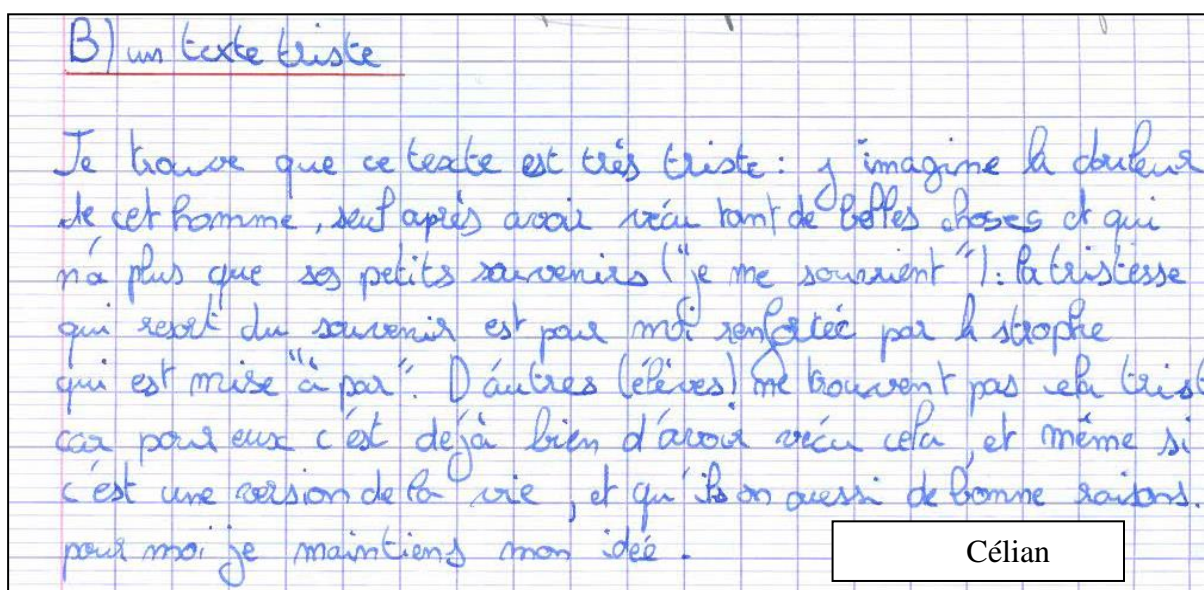 B) un texte triste
Je trouve que ce texte est très triste : j'imagine la douleur
de cet homme, seul après avoir vécu tant de belles choses et qui
n'a plus que ses petits souvenirs ("je me souvient") : la tristesse
qui resort du souvenir est pour moi renfortée par la strophe
qui est mise "à par". D'autres (élèves) ne trouvent pas cela trist
car pour eux c'est dejà bien d'avoir vécu cela, et même si
c'est une version de la vie, et qu'ils on aussi de bonne raisons.
pour moi je maintiens mon ideé.
Célian